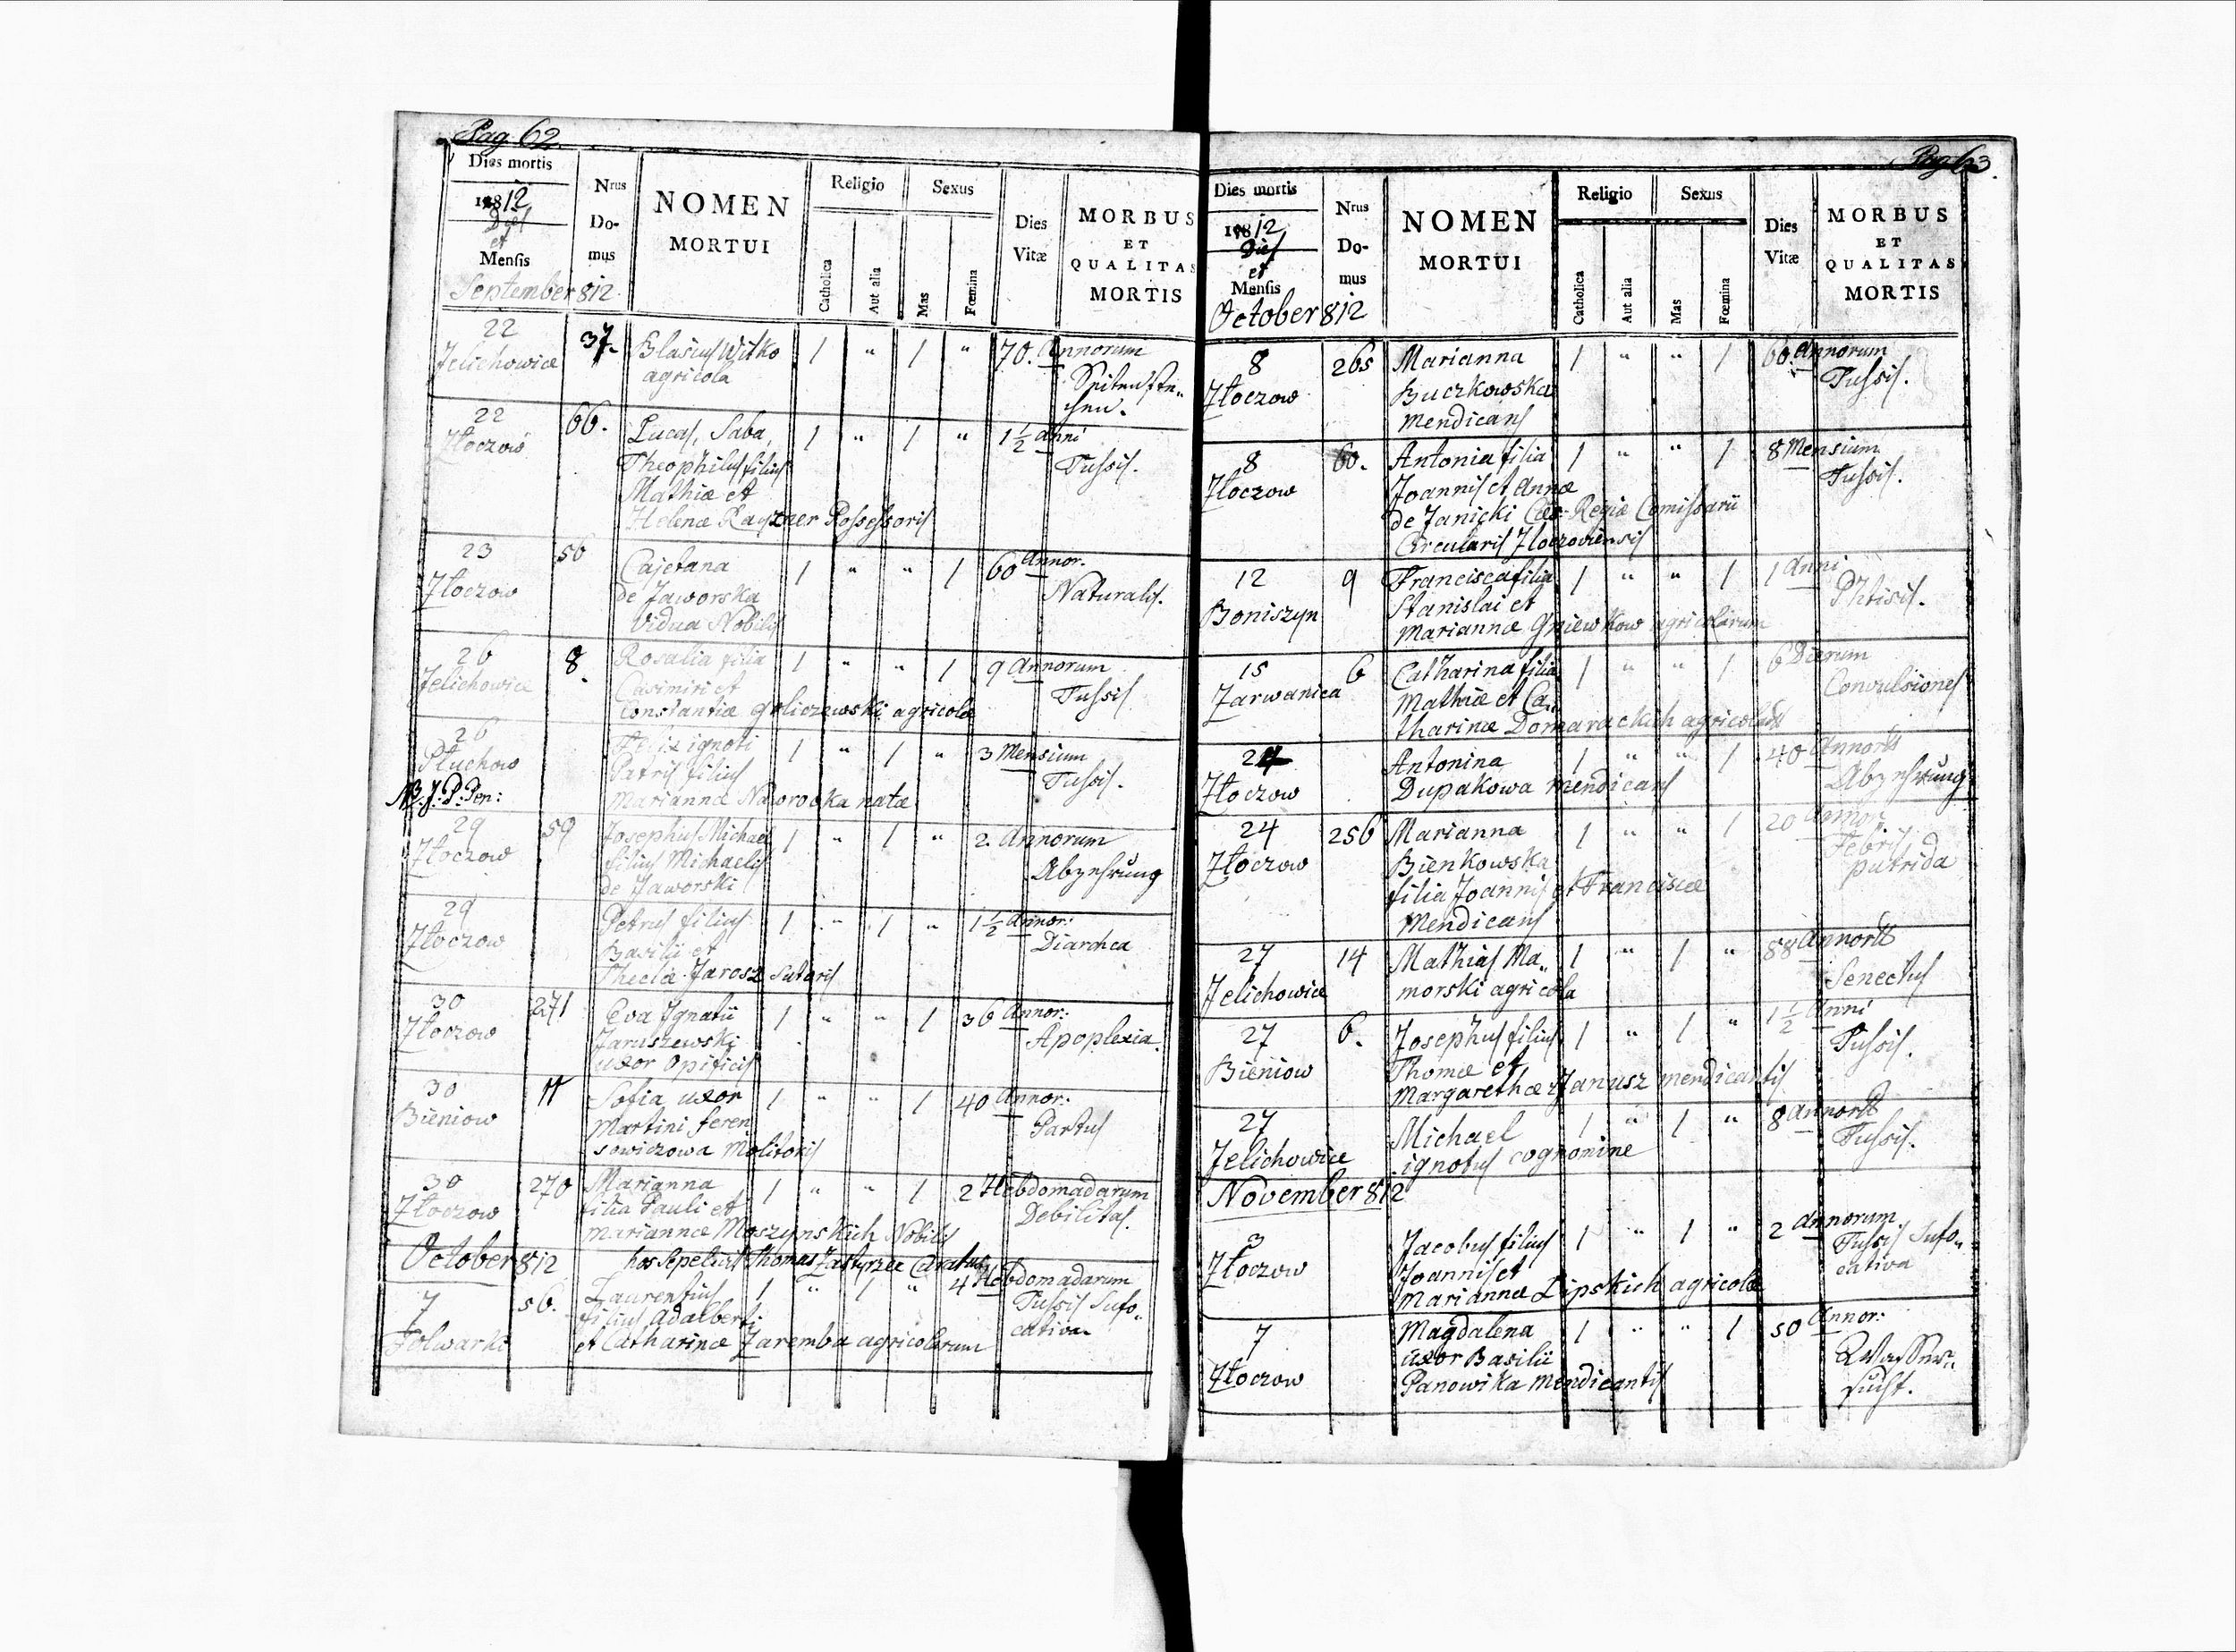 Pag. 62.
Dies mortis
1812
Dies
et
Mensis
September 812
Nrus
Do-
mus
NOMEN
MORTUI
Religio
Catholica
Aut alia
Sexus
Mas
Fœmina
Dies
Vitæ
MORBUS
ET
QUALITAS
MORTIS
22 37. Blasius Witko 1 " 1 " 70. Annorum
Jelichowice agricola Seitenste„
chen.
22 66. Lucas, Saba, 1 " 1 " 1 1/2 Anni
Złoczow Theophilus filius Tussis.
Mathiæ et
Helenæ Possessoris
23 56 Cajetana 1 " " 1 60 Annor.
Złoczow de Jaworska Naturalis.
Vidua Nobilis
26 8. Rosalia filia 1 " " 1 9 Annorum
Jelichowice Casimiri et Tussis
Constantiæ Goliczewski agricolæ
26 Felix ignoti 1 " 1 " 3 Mensium
Płuchow Patris filius Tussis.
NB. J. P. Pen: Mariannæ Naworoska natæ
29 59 Josephus Michael 1 " 1 " 2. Annorum
Złoczow filius Michaelis Abzehrung
de Jaworski
29 Petrus filius 1 " 1 " 1 1/2 Annor:
Złoczow Basilii et Diarrhea
Theclæ Jarosz Sutoris
30 271 Eva Ignatii 1 " " 1 36 Annor:
Złoczow Jaruszewski Apoplexia.
uxor Opificis
30 11 Sofia uxor 1 " " 1 40 Annor:
Bieniow Martini feren Partus
sowiczowa Molitoris
30 270 Marianna 1 " " 1 2 Hebdomadarum
Złoczow filia Pauli et Debilitas.
Mariannæ Moszynskich Nobilis
October 812 hos sepelivit Thomas Zastyrzec Curatus
7 56. Laurentius 1 " 1 " 4 Hebdomadarum
filius Adalberti Tussis Sufo„
Folwarki et Catharinæ Zaremba agricolarum cativa
Pag 63.
Dies mortis
1812
Dies
et
Mensis
October 812
Nrus
Do-
mus
NOMEN
MORTUI
Religio
Catholica
Aut alia
Sexus
Mas
Fœmina
Dies
Vitæ
MORBUS
ET
QUALITAS
MORTIS
8 265 Marianna 1 " " 1 60. Annorum
Złoczow Buczkowska Tussis.
Mendicans
8 60. Antonia filia 1 " " 1 8 Mensium
Złoczow Joannis et Annæ Tussis.
de Janicki Cæs. Regiæ Comissarii
Circularis Złoczoviensis
12 9 Francisca filia 1 " " 1 1 Anni
Boniszyn Stanislai et Phtisis.
Mariannæ Gniewkow agricolarum
15 6 Catharina filia 1 " " 1 6 Dierum
Zarwanica Mathiæ et Ca„ Convulsiones
tharinæ Domarackich agricolarum
24 Antonina 1 " " 1 40 Annorū
Złoczow Dupakowa Mendicans Abzehrung
24 256 Marianna 1 " " 1 20 Annor
Złoczow Bienkowska Febris
filia Joannis et Franciscæ putrida
Mendicans
27 14 Mathias Ma„ 1 " 1 " 88 Annorū
Jelichowice morski agricola Senectus
27 6. Josephus filius 1 " 1 " 1 1/2 Anni
Bieniow Thomæ et Tussis.
Margarethæ Janusz mendicantis
27 Michael 1 " 1 " 8 Annorū
Jelichowice ignotus cognomine Tussis.
November 812
3 Jacobus filius 1 " 1 " 2 Annorum
Złoczow Joannis et Tussis Sufo„
Mariannæ Lipskich agricolæ cativa
7 Magdalena 1 " " 1 50 Annor:
Złoczow uxor Basilii Wasser„
Panowika Mendicantis sucht.